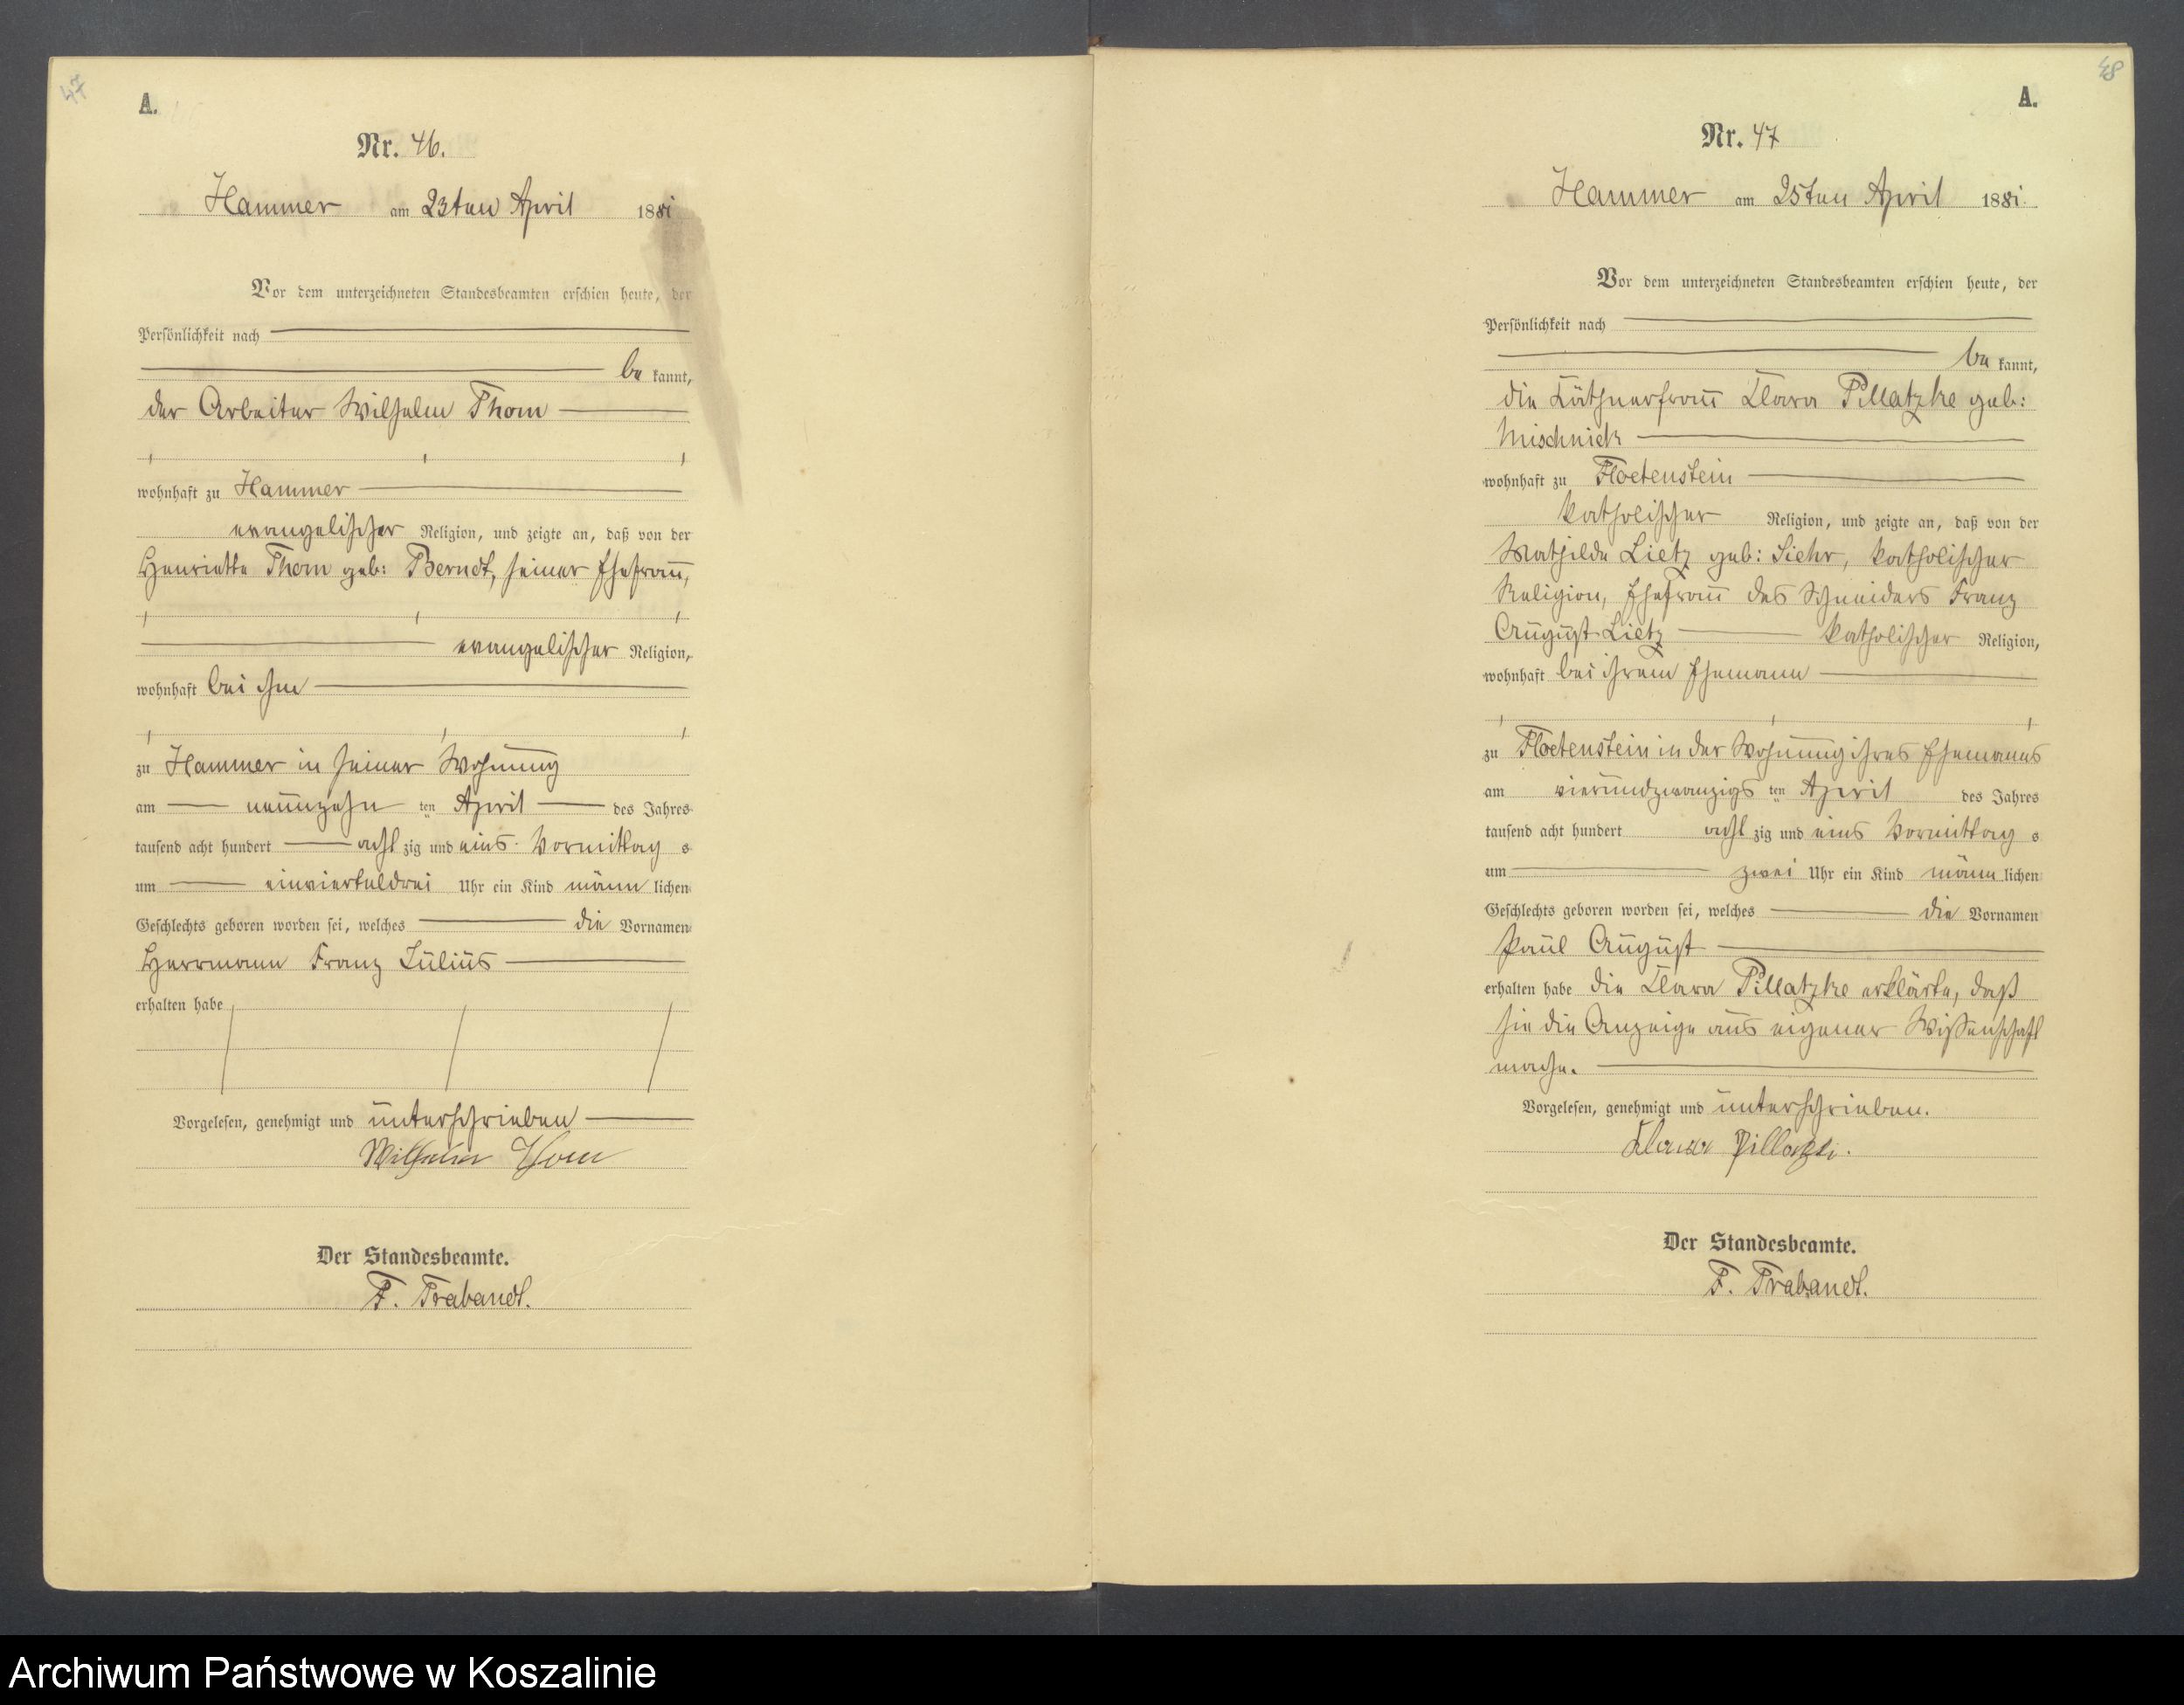 47
A.
Nr. 46.
Hammer am 23ten April 1881
Vor dem unterzeichneten Standesbeamten erschien heute, der
Persönlichkeit nach
be kannt,
der Arbeiter Wilhelm Thom
wohnhaft zu Hammer
evangelischer Religion, und zeigte an, daß von der
Henriette Thom geb: Berndt, seiner Ehefrau,
evangelischer Religion,
wohnhaft bei ihm
zu Hammer in seiner Wohnung
am neunzehn ten April des Jahres
tausend acht hundert acht zig und eins Vormittag s
um einvierteldrei Uhr ein Kind männ lichen
Geschlechts geboren worden sei, welches die Vornamen
Herrmann Franz Julius
erhalten habe
Vorgelesen, genehmigt und unterschrieben
Wilhelm Thom
Der Standesbeamte.
F. Trabandt.
48
A.
Nr. 47
Hammer am 25ten April 1881.
Vor dem unterzeichneten Standesbeamten erschien heute, der
Persönlichkeit nach
be kannt,
die Käthnerfrau Clara Pillatzke geb:
Mischnick
wohnhaft zu Floetenstein
katholischer Religion, und zeigte an, daß von der
Mathilde Lietz geb: Siehr, katholischer
Religion, Ehefrau des Schneiders Franz
August Lietz katholischer Religion,
wohnhaft bei ihrem Ehemann
zu Floetenstein in der Wohnung ihres Ehemannes
am vierundzwanzigs ten April des Jahres
tausend acht hundert acht zig und eins Vormittag s
um zwei Uhr ein Kind männ lichen
Geschlechts geboren worden sei, welches die Vornamen
Paul August
erhalten habe die Clara Pillatzke erklärte, daß
sie die Anzeige aus eigener Wissenschaft
mache.
Vorgelesen, genehmigt und unterschrieben.
Clara
Der Standesbeamte.
F. Trabandt.
Archiwum Państwowe w Koszalinie